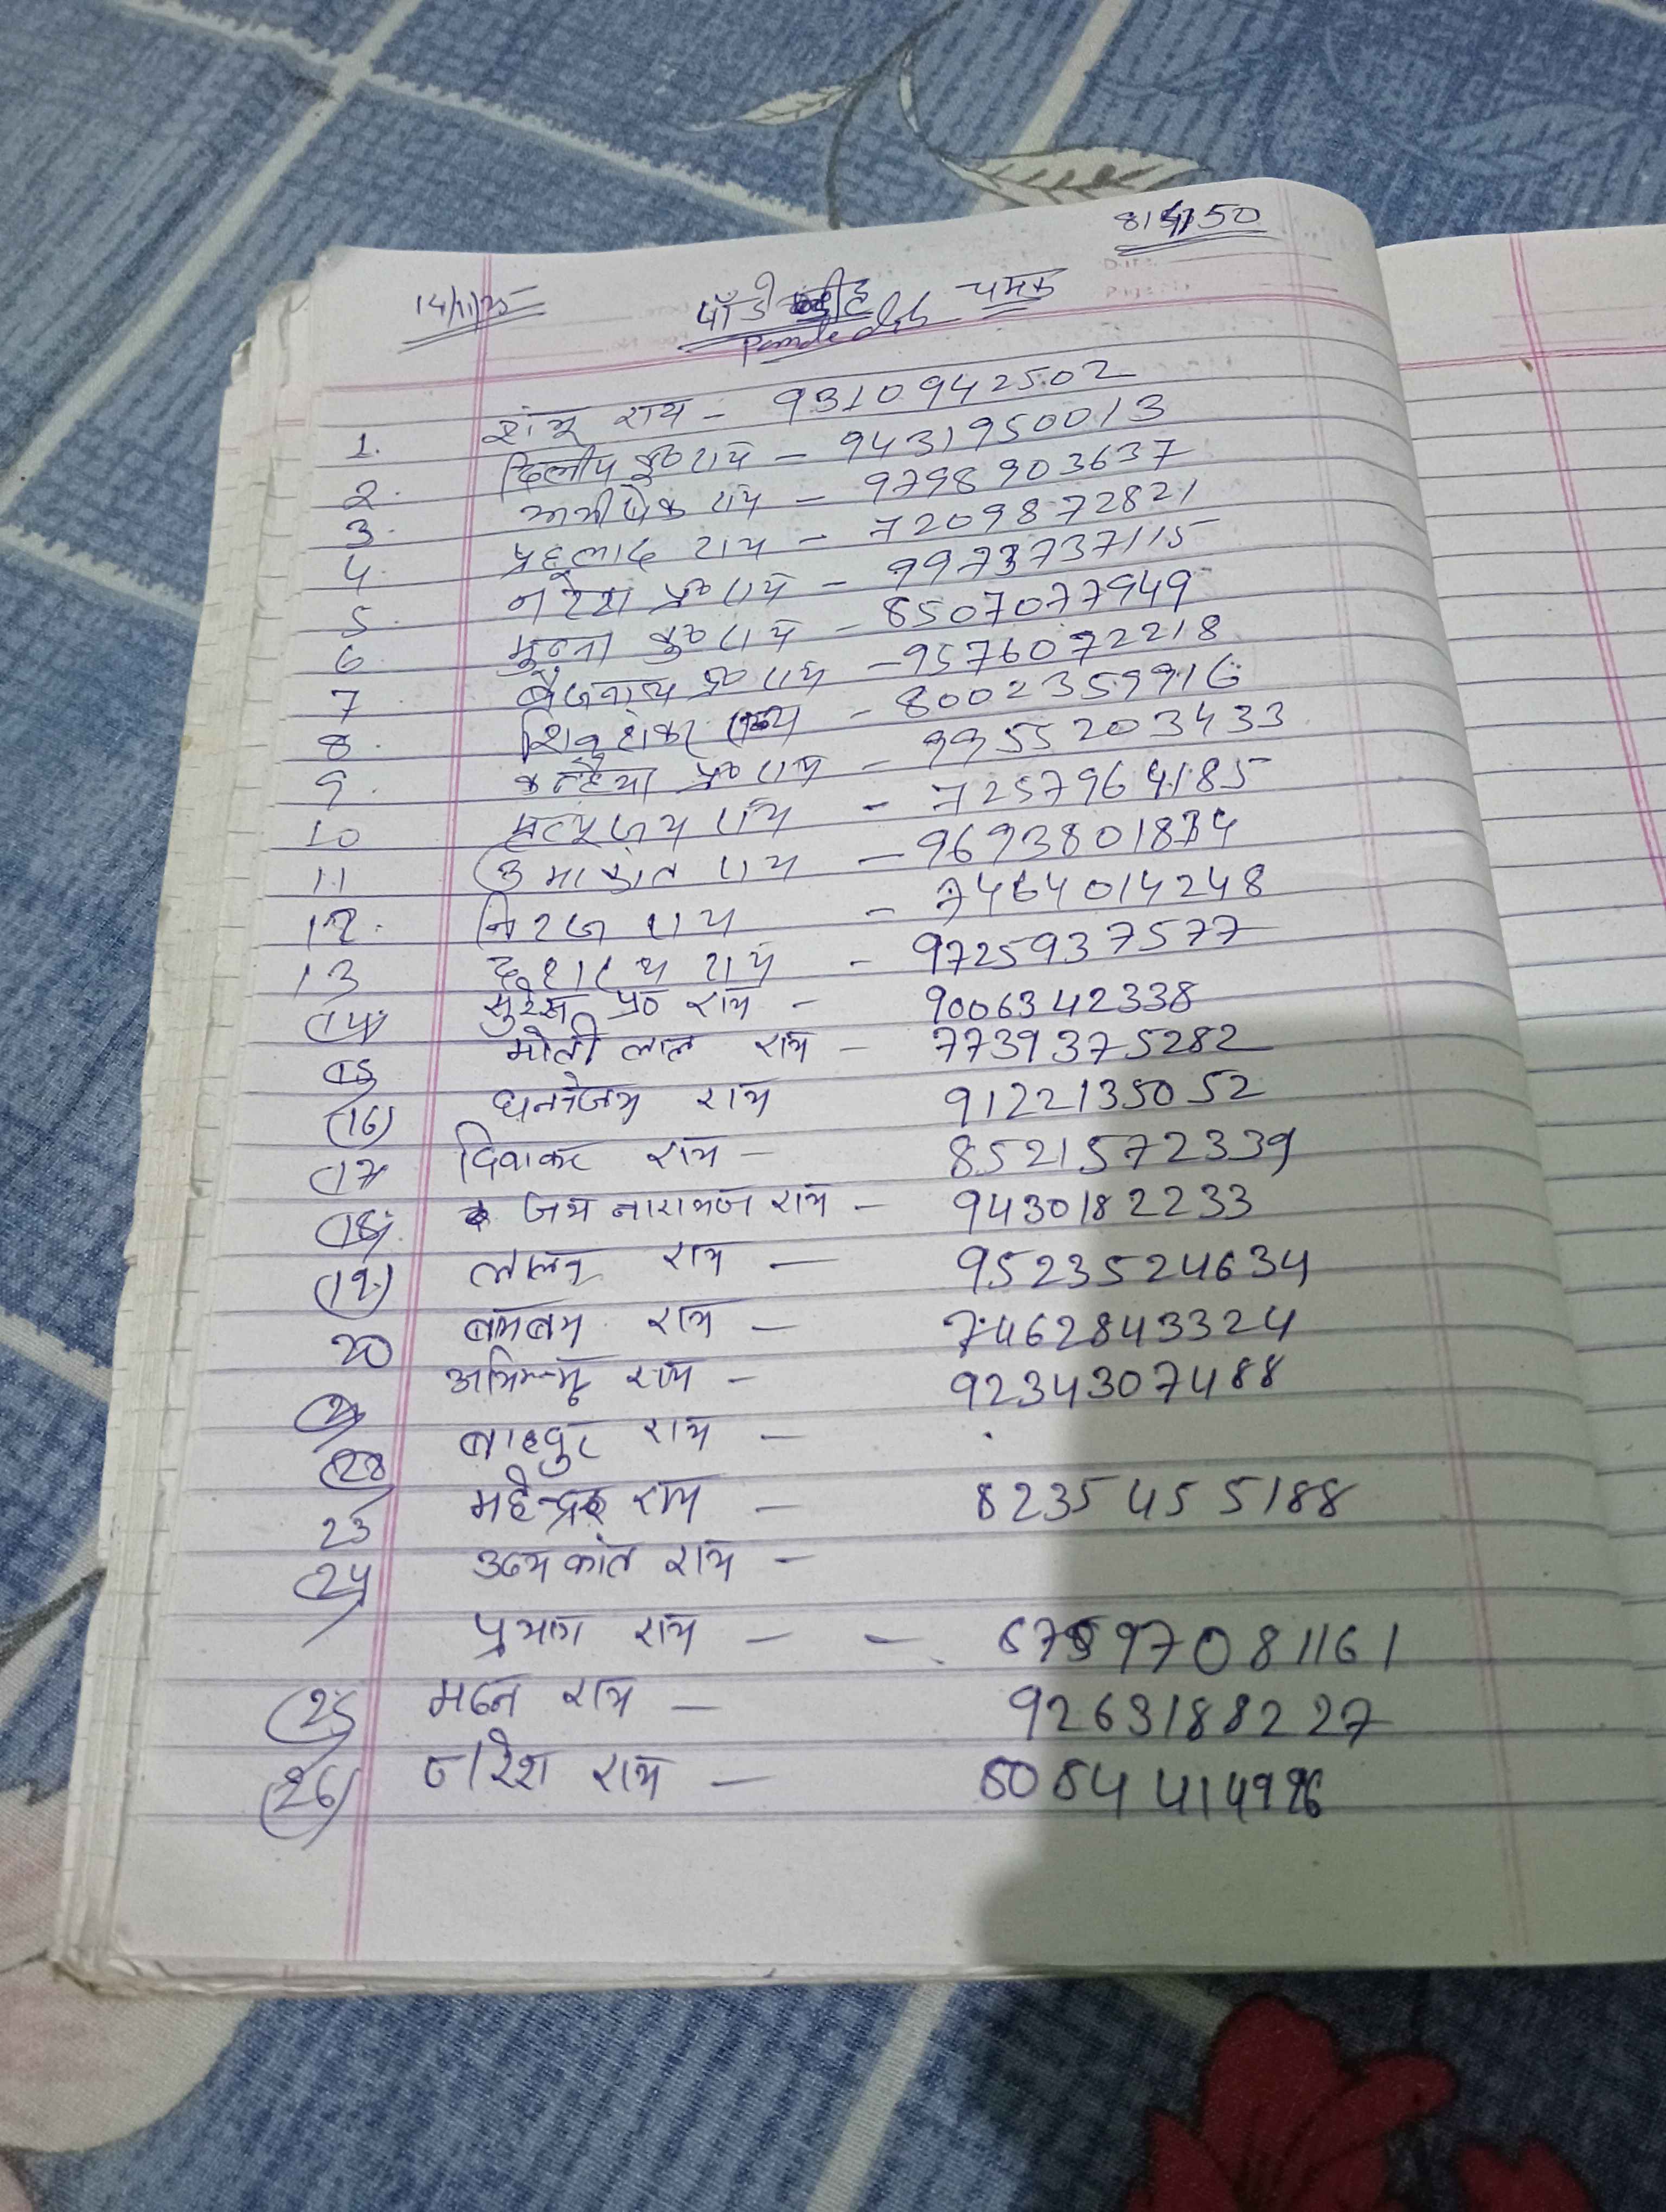 14/11/25
पाँडेडीह चमक
Pandedih
1. शंभू राय - 9310942502
2. दिलीप कु० राय - 9431950013
3. अभीषेक राय - 9798903637
4 प्रहलाद राय - 7209872821
5. नरेश प्र० राय - 9973737115
6 मुन्ना कु० राय - 8507077949
7 बैजनाथ प्र० राय - 9576072218
8. शिवशंकर राय - 8002359916
9. कन्हैया प्र० राय - 9955203433
10 मृत्युंजय राय - 7257964185
11 उमाकांत राय -
12. निरज राय - 7464014248
13 दशरथ राय - 9725937577
(14) सुरेश प्र० राय - 9006342338
(15) मोती लाल राय - 7739375282
(16) धनंजय राय 9122135052
(17) दिवाकर राय - 8521572339
(18) जय नारायण राय - 9430182233
(19) लालन राय - 9523524634
20 बमबम राय - 7462843324
(21) अभिमन्यू राय - 9234307488
(22) राय -
23 महेन्द्र राय - 8235455188
(24) उदयकांत राय -
प्रयाग राय - -
(25) मदन राय - 9263188227
(26) नरेश राय -